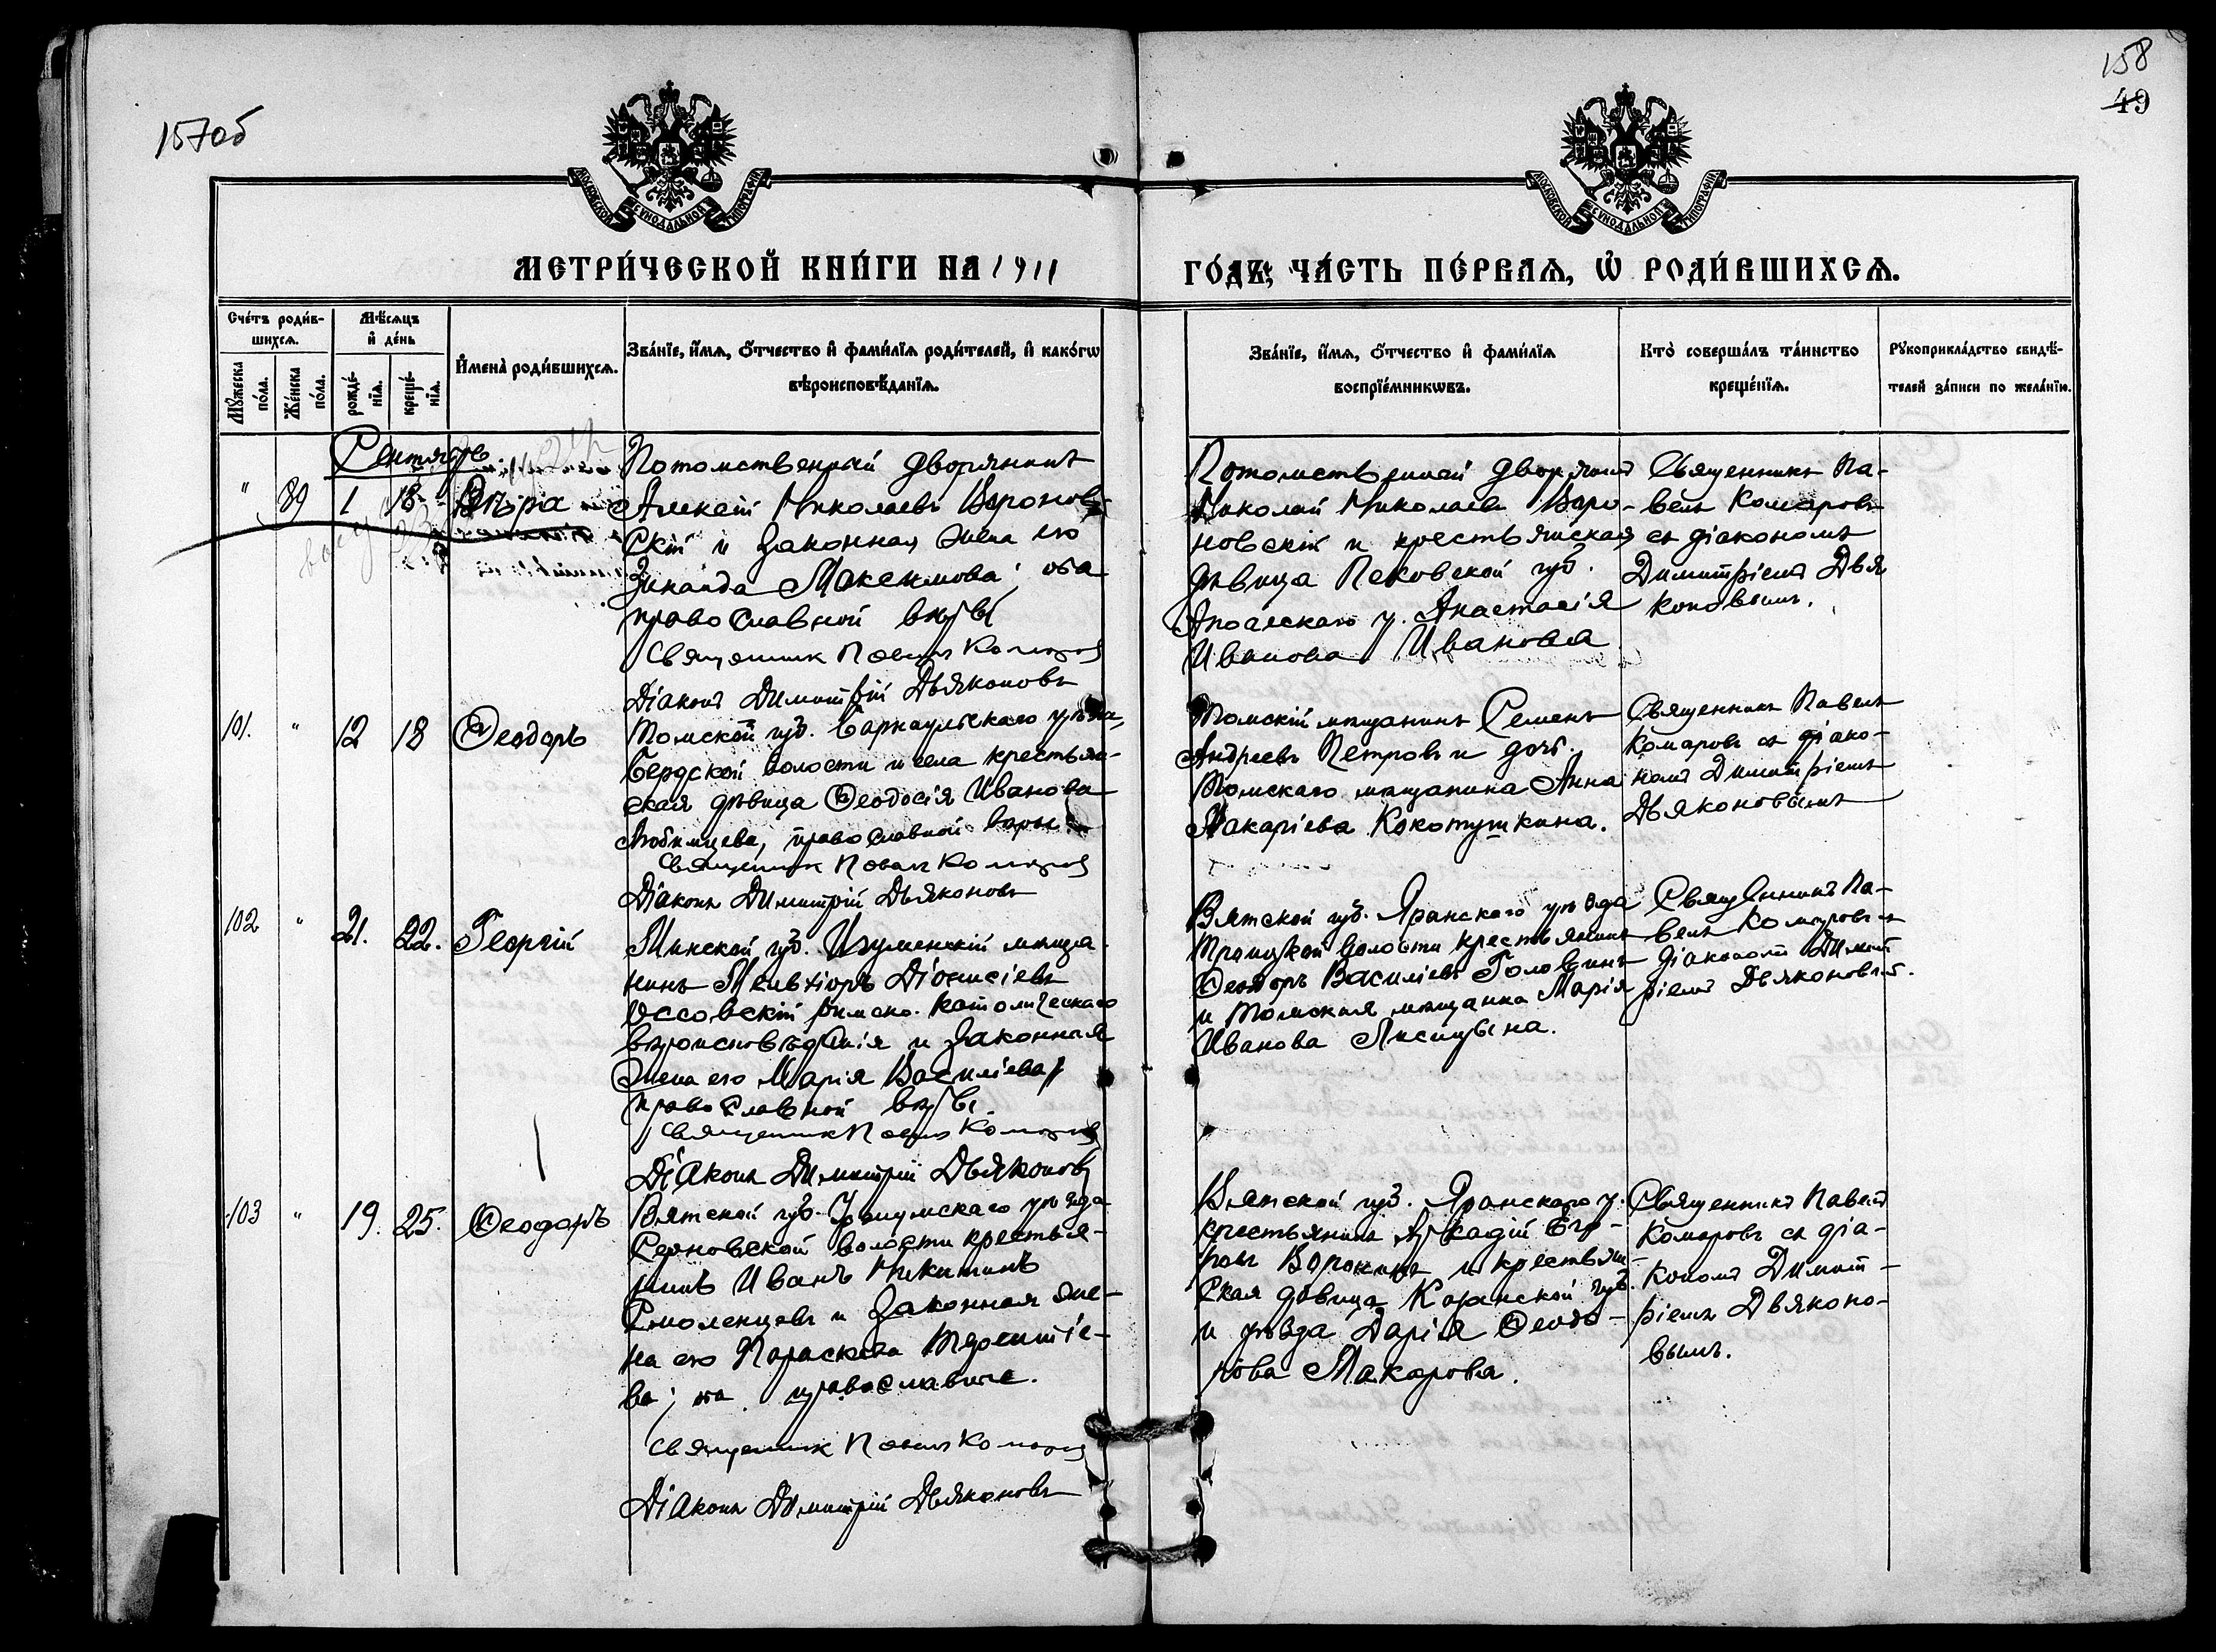 157об
158
49
МОСКОВСКОЙ СУНОДАЛЬНОЙ ТИПОГРАФІИ
МОСКОВСКОЙ СУНОДАЛЬНОЙ ТИПОГРАФІИ
МЕТРИ́ЧЕСКОЙ КНИ́ГИ НА 1911
ГО́ДЪ, ЧА́СТЬ ПЕ́РВАѦ, Ѡ҆ РОДИ́ВШИХСѦ.
Сче́тъ роди́в-
шихсѧ.
Мꙋ́жеска по́ла.
Же́нска по́ла.
Мѣ́сѧцъ
и҆ де́нь
рожде́-
нїѧ.
креще́-
нїѧ.
И҆мена̀ роди́вшихсѧ.
Зва́нїе, и҆́мѧ, ѻ҆́тчество и҆ фами́лїѧ роди́телей, и҆ како́гѡ
вѣроисповѣ́данїѧ.
Зва́нїе, и҆́мѧ, ѻ҆́тчество и҆ фами́лїѧ
воспрїе́мникѡвъ.
Кто̀ соверша́лъ та́инство
креще́нїѧ.
Рꙋкоприкла́дство свидѣ́-
телей за́писи по жела́нїю.
Сентябрь
" 89 1 18 Вѣра
Потомственный дворянинъ
Алексѣй Николаевъ Воронов-
скій и законная жена его
Зинаида Максимова; оба
православной вѣры
Священник Павел Комаров
Діаконъ Димитрій Дьяконовъ
Потомственный дворянинъ
Николай Николаевъ Воро-
новскій и крестьянская
дѣвица Псковской губ.
у. Анастасія
Иванова Иванова
Священникъ Па-
велъ Комаровъ
съ діакономъ
Димитріемъ Дья
коновымъ.
101. " 12 18 Ѳеодоръ
Томской губ. Барнаульскаго уѣзда,
Бердской волости и села крестьян-
ская дѣвица Ѳеодосія Иванова
Любимцева, православной вѣры
Священник Павел Комаров
Діаконъ Димитрій Дьяконовъ
Томскій мѣщанинъ Семенъ
Андреевъ Петровъ и дочь
Томскаго мѣщанина Анна
Макаріева Кокотушкина.
Священникъ Павелъ
Комаровъ съ діако-
номъ Димитріемъ
Дьяконовымъ
102 " 21. 22. Георгій
Минской губ. Игуменскій мѣща
нинъ Діонисіевъ
Оссовскій римско-католическаго
вѣроисповѣданія и законная
жена его Марія Василіева,
православной вѣры.
Священник Павел Комаров
Діаконъ Димитрій Дьяконовъ
Вятской губ. Яранскаго уѣзда
Троицкой волости крестьянинъ
Ѳеодоръ Василіевъ Головинъ
и Томская мѣщанка Марія
Иванова Лисицына.
Священникъ Па-
велъ Комаровъ съ
діакономъ Димит
ріемъ Дьяконовым.
103 " 19. 25. Ѳеодоръ
Вятской губ. Уржумскаго уѣзда
Серновской волости крестья-
нинъ Иванъ Никитинъ
Смоленцевъ и законная же-
на его Параскева Терентіе-
ва; оба православные.
Священник Павел Комаров
Діаконъ Димитрій Дьяконовъ
Вятской губ. Яранскаго у.
крестьянинъ Аркадій Его-
ровъ Воронинъ и крестьян-
ская дѣвица Казанской губ.
и уѣзда Дарія Ѳеодо-
рова Макарова.
Священникъ Павелъ
Комаровъ съ діа-
кономъ Димит-
ріемъ Дьяконо-
вымъ.